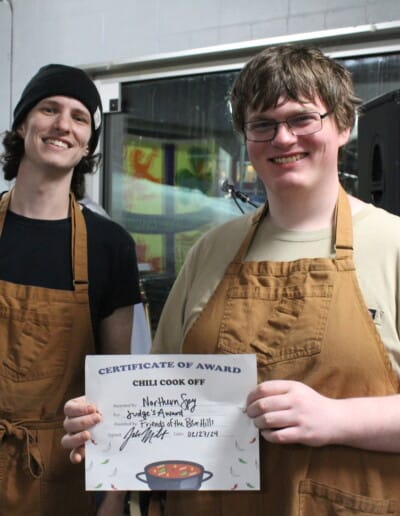 CERTIFICATE OF AWARD
CHILI COOK OFF
Awarded to: Northern Spy
For: Judge's Award
Awarded by: Friends of the Blue Hills
Signed: Date: 02/27/24